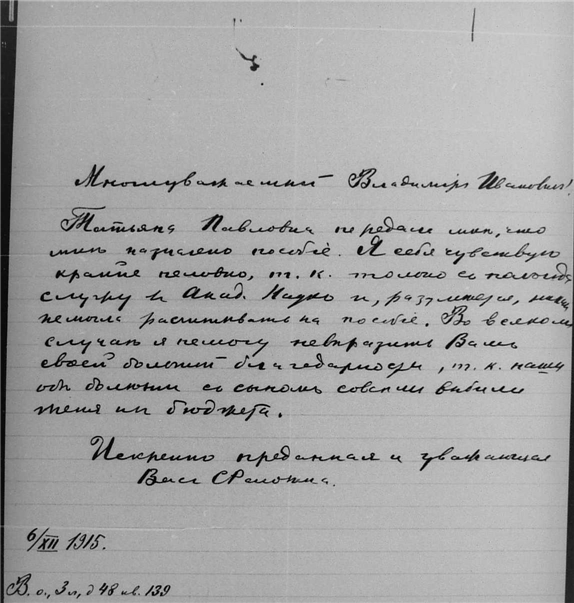 Многоуважаемый Владимiръ Ивановичъ!
Татьяна Павловна передала мнѣ, что
мнѣ назначено пособiе. Я себя чувствую
крайне неловко, т. к. только съ полгода
служу въ Акад. Наукъ и, разумѣется,
не могла расчитывать на пособiе. Во всякомъ
случаѣ я не могу не выразить Вамъ
своей большой благодарности, т. к. наши
обѣ болѣзни съ сыномъ совсѣмъ выбили
меня изъ бюджета.
Искренно преданная и уважающая
Васъ
6/XII 1915.
В. о., 3 л, д 48 кв. 139